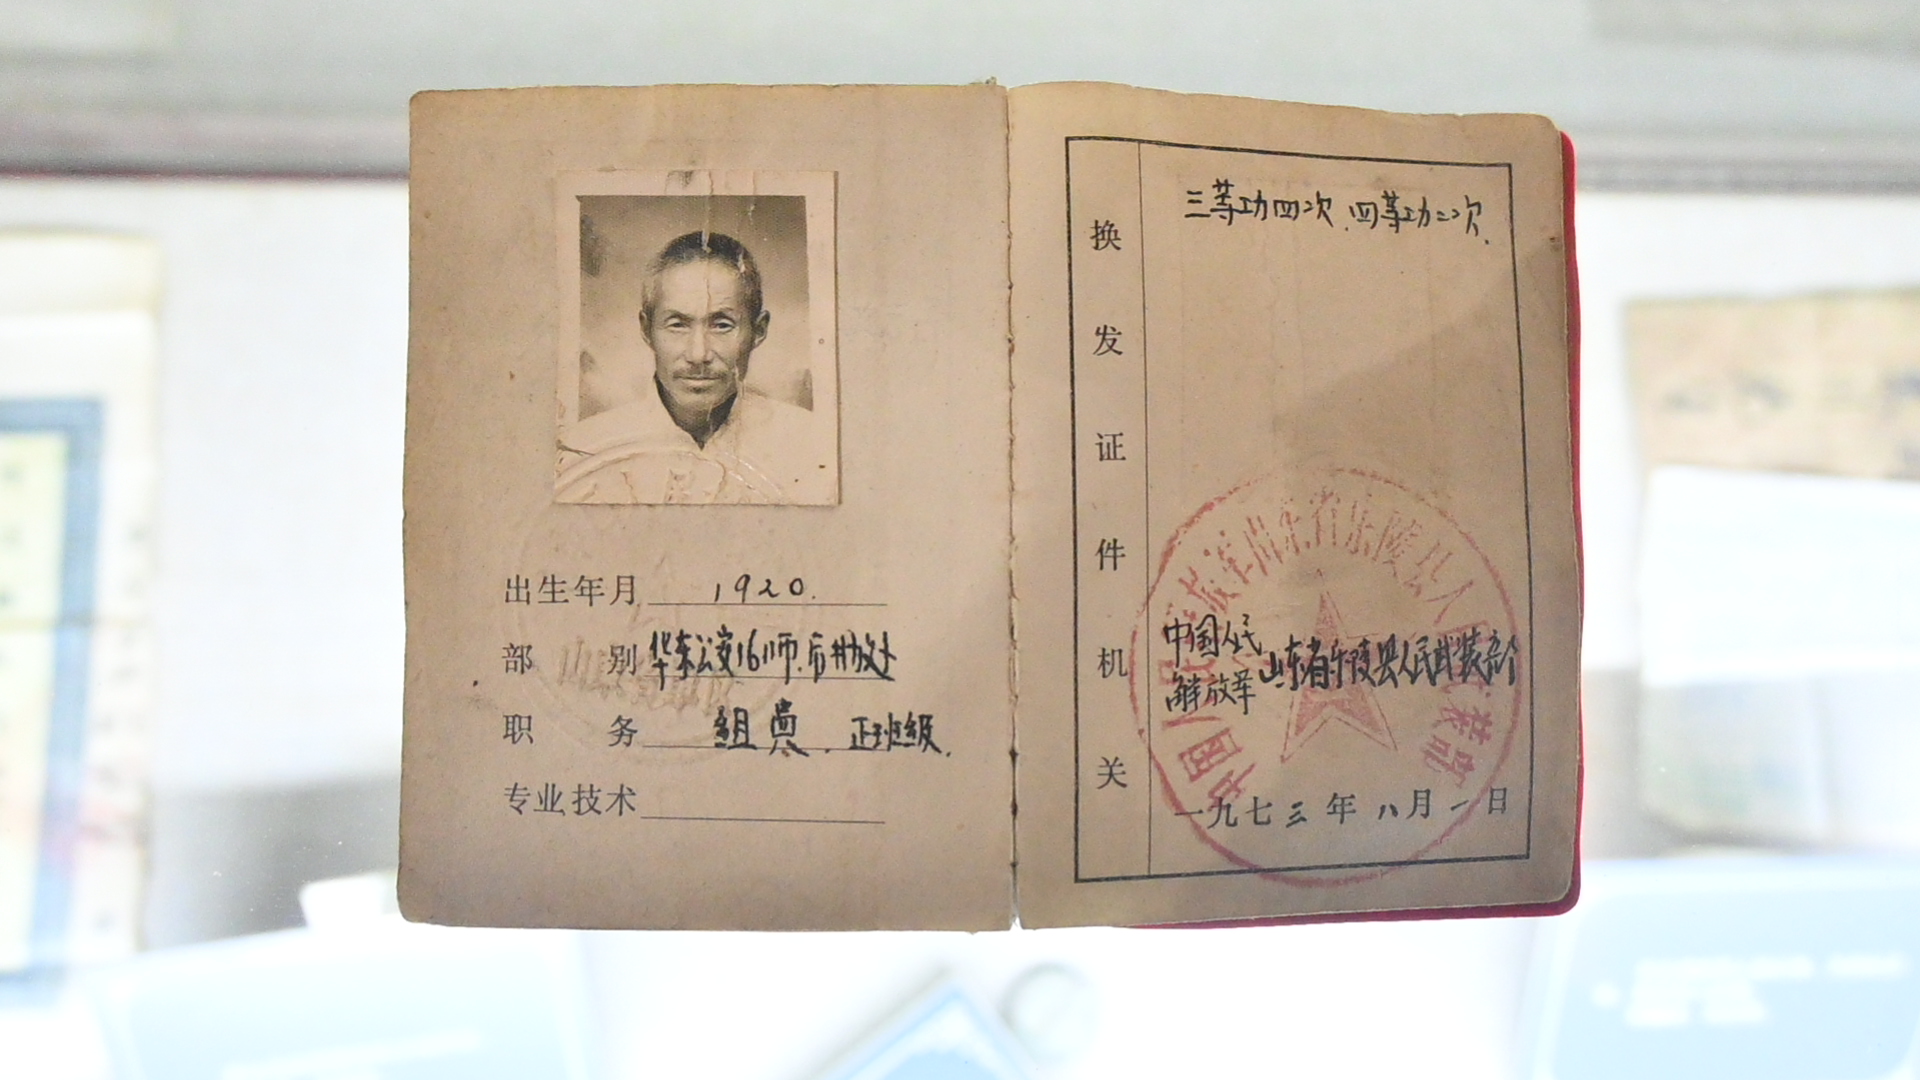 出生年月 1920.
部别 华东公安16师.后勤处
职务 组员.正班级.
专业技术
三等功四次.四等功二次.
换发证件机关
中国人民解放军 山东省乐陵县人民武装部
一九七三年八月一日
中国人民解放军山东省乐陵县人民武装部